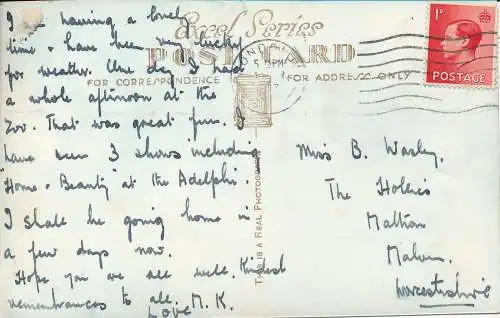 I am having a lovely
time & have been very lucky
for weather. One day I had
a whole afternoon at the
Zoo. That was great fun. I
have seen 3 shows including
"Home & Beauty" at the Adelphi.
I shall be going home in
a few days now.
Hope you are all well. Kindest
remembrances to all. M. K.
Love
Excel Series
POST CARD
FOR CORRESPONDENCE
FOR ADDRESS ONLY
THIS IS A REAL PHOTOGRAPH
LONDON
5 PM
1D
POSTAGE
Miss B. Wasley.
The Hollies
Mathon
Malvern.
Worcestershire